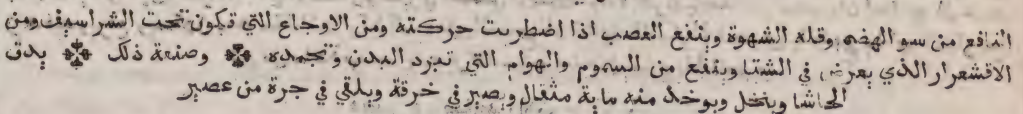 النافع من سو الهضم وقلة الشهوة وينفع العصب اذا اضطربت حركته ومن الاوجاع التي تكون تحت الشراسيف ومن
الاقشعرار الذي يعرض في الشتا وينفع من السموم والهوام التي تبرد البدن وتجمده ❊ وصنعة ذلك ❊ يدق
الحاشا وينخل ويوخذ منه ماية مثقال ويصير في خرقة ويلقي في جرة من عصير